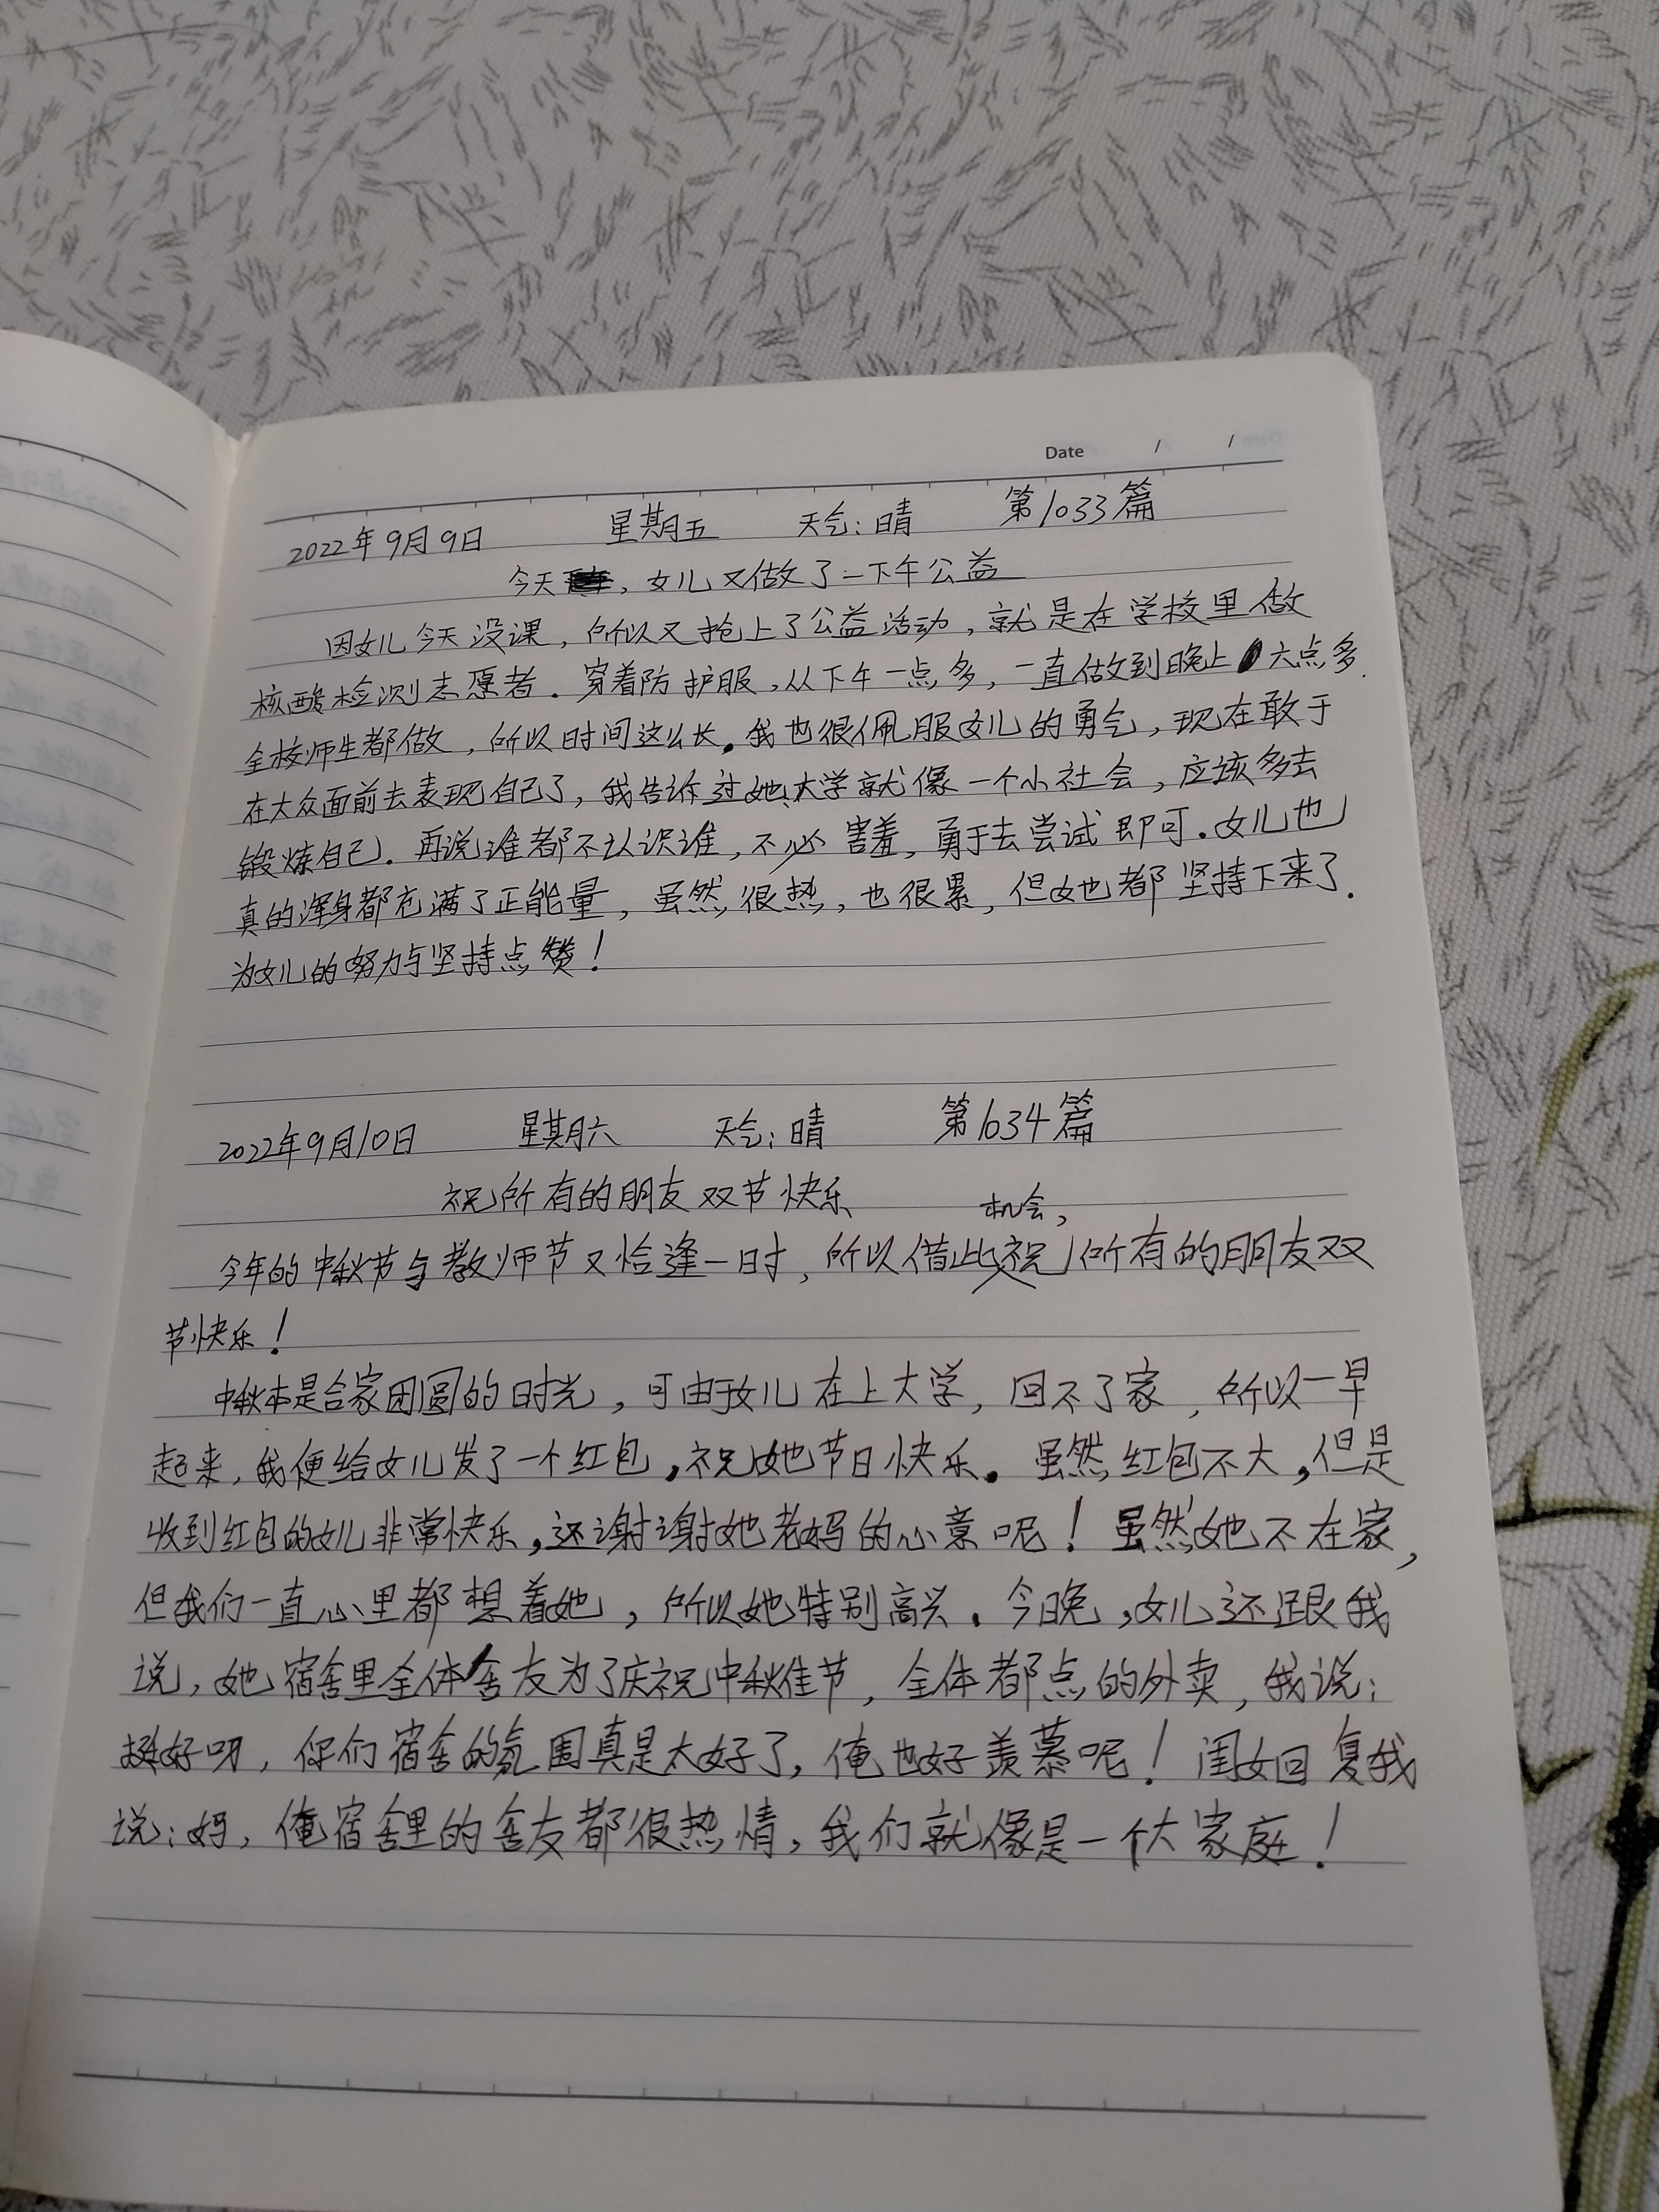 Date / /
2022年9月9日 星期五 天气:晴 第1033篇
今天,女儿又做了一下午公益
因女儿今天没课,所以又抢上了公益活动,就是在学校里做
核酸检测志愿者.穿着防护服,从下午一点多,一直做到晚上六点多.
全校师生都做,所以时间这么长。我也很佩服女儿的勇气,现在敢于
在大众面前去表现自己了,我告诉过她,大学就像一个小社会,应该多去
锻炼自己.再说谁都不认识谁,不必害羞,勇于去尝试即可.女儿也
真的浑身都充满了正能量,虽然很热,也很累,但她都坚持下来了.
为女儿的努力与坚持点赞!
2022年9月10日 星期六 天气:晴 第1034篇
祝所有的朋友双节快乐
今年的中秋节与教师节又恰逢一日时,所以借此机会,祝所有的朋友双
节快乐!
中秋本是合家团圆的时光,可由于女儿在上大学,回不了家,所以一早
起来,我便给女儿发了一个红包,祝她节日快乐。虽然红包不大,但是
收到红包的女儿非常快乐,还谢谢她老妈的心意呢!虽然她不在家,
但我们一直心里都想着她,所以她特别高兴.今晚,女儿还跟我
说,她宿舍里全体舍友为了庆祝中秋佳节,全体都点的外卖,我说:
挺好呀,你们宿舍的氛围真是太好了,俺也好羡慕呢!闺女回复我
说:妈,俺宿舍里的舍友都很热情,我们就像是一个大家庭!